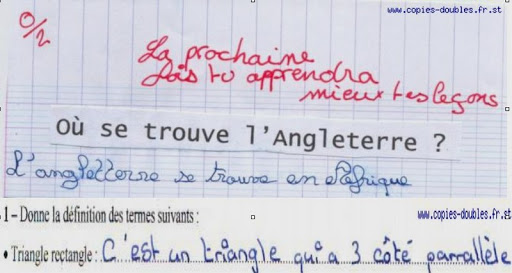 www.copies-doubles.fr.st
0/2
La prochaine
fois tu apprendra
mieux tes leçons
Où se trouve l'Angleterre ?
L'angletterre se trouve en Afrique
www.copies-doubles.fr.st
1 – Donne la définition des termes suivants :
• Triangle rectangle : C'est un triangle qui a 3 côté parrallèle